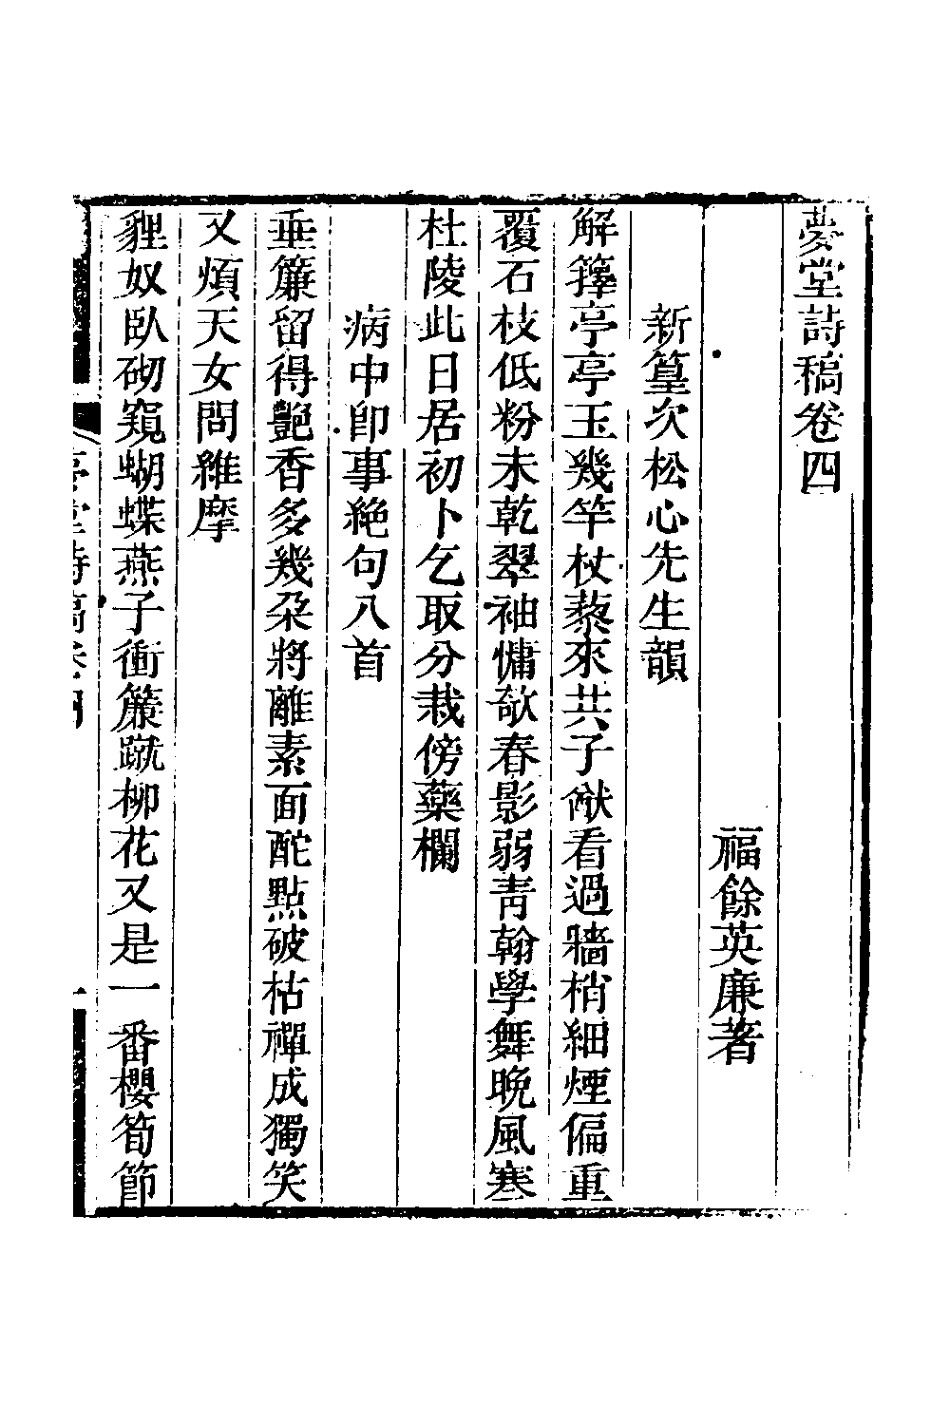 夢堂詩稿卷四
福餘英廉著
新篁次松心先生韻
解籜亭亭玉幾竿杖藜來共子猷看過牆梢細煙偏重
覆石枝低粉未乾翠袖慵欹春影弱青翰學舞晚風寒
杜陵此日居初卜乞取分栽傍藥欄
病中卽事絶句八首
垂簾留得艶香多幾朶將離素面酡點破枯禪成獨笑
又煩天女問維摩
貍奴臥砌窺蝴蝶燕子衝簾蹴柳花又是一番櫻筍節